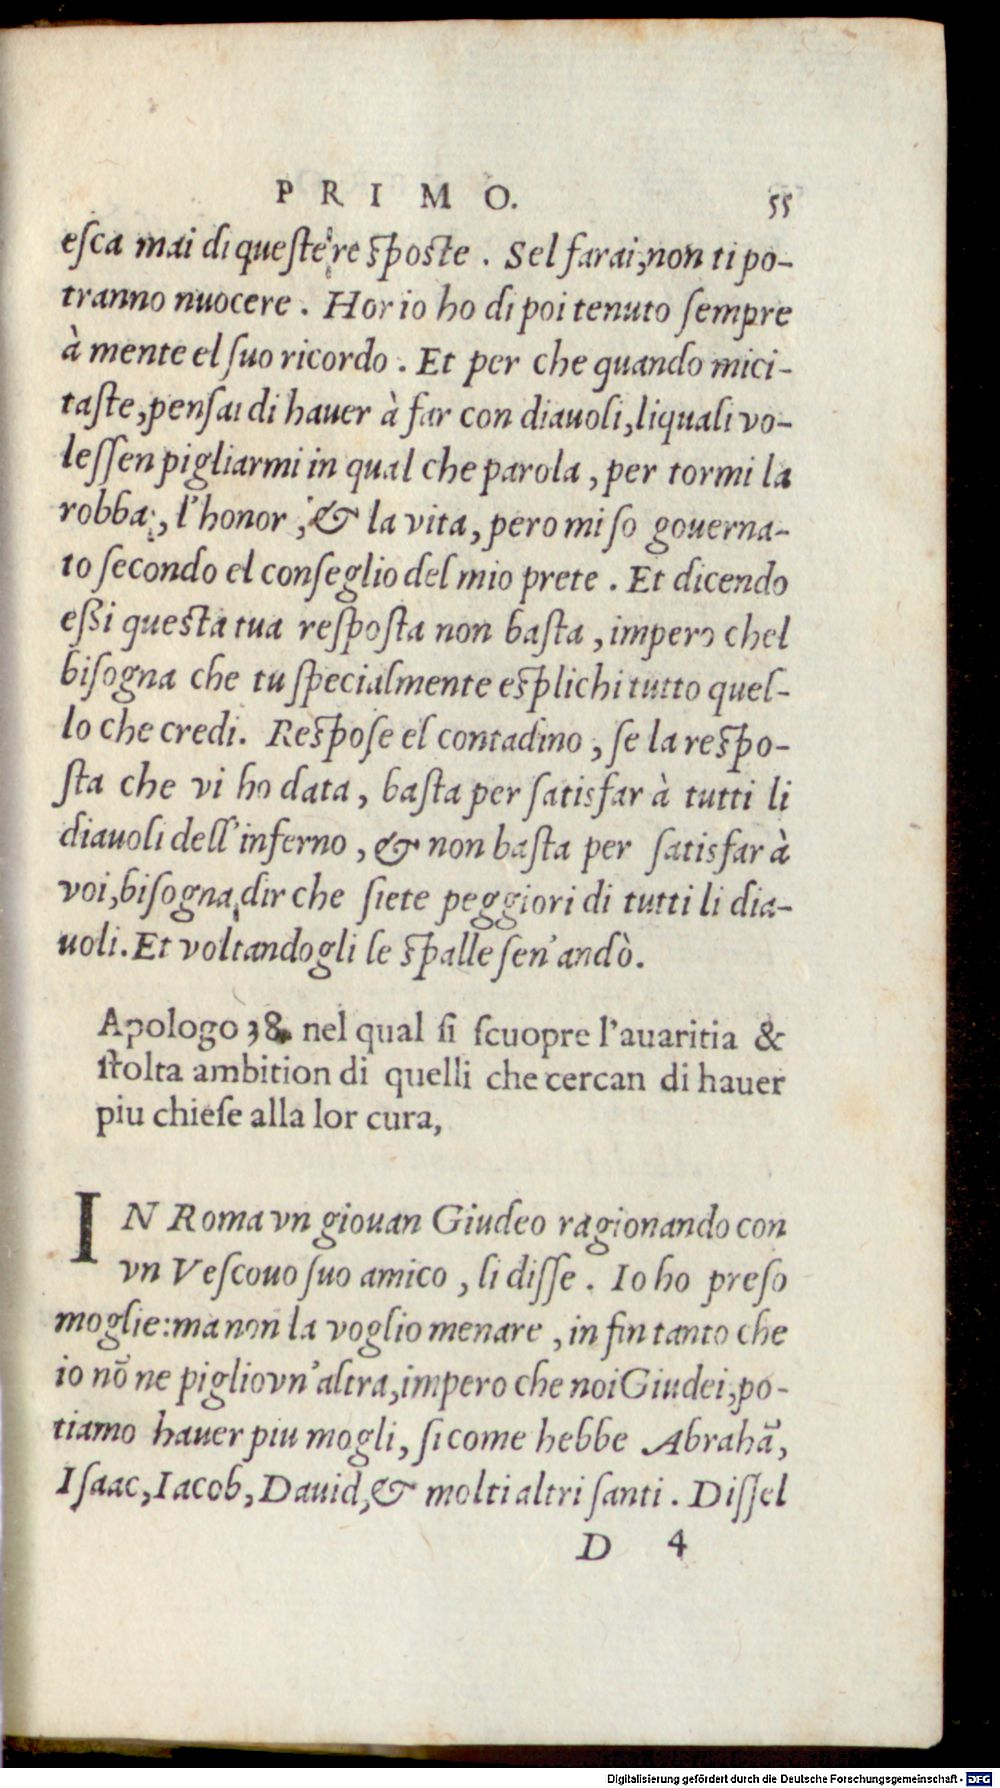 PRIMO. 55
eſca mai di queſte reſpoſte. Sel farai, non ti po-
tranno nuocere. Hor io ho di poi tenuto ſempre
à mente el ſuo ricordo. Et per che quando mi ci-
taſte, penſai di hauer à far con diauoli, liquali vo-
leſſen pigliarmi in qual che parola, per tormi la
robba, l'honor, & la vita, pero mi ſo gouerna-
to ſecondo el conſeglio del mio prete. Et dicendo
eßi queſta tua reſpoſta non baſta, impero chel
biſogna che tu ſpecialmente eſplichi tutto quel-
lo che credi. Reſpoſe el contadino, ſe la reſpo-
ſta che vi ho data, baſta per ſatisfar à tutti li
diauoli dell'inferno, & non baſta per ſatisfar à
voi, biſogna dir che ſiete peggiori di tutti li dia-
uoli. Et voltandogli le ſpalle ſen'andò.
Apologo 38. nel qual ſi ſcuopre l'auaritia &
ſtolta ambition di quelli che cercan di hauer
piu chieſe alla lor cura,
IN Roma vn giouan Giudeo ragionando con
vn Veſcouo ſuo amico, li diſſe. Io ho preſo
moglie: ma non la voglio menare, in fin tanto che
io nõ ne piglio vn'altra, impero che noi Giudei, po-
tiamo hauer piu mogli, ſi come hebbe Abrahã,
Iſaac, Iacob, Dauid, & molti altri ſanti. Diſſel
D 4
Digitalisierung gefördert durch die Deutsche Forschungsgemeinschaft - DFG